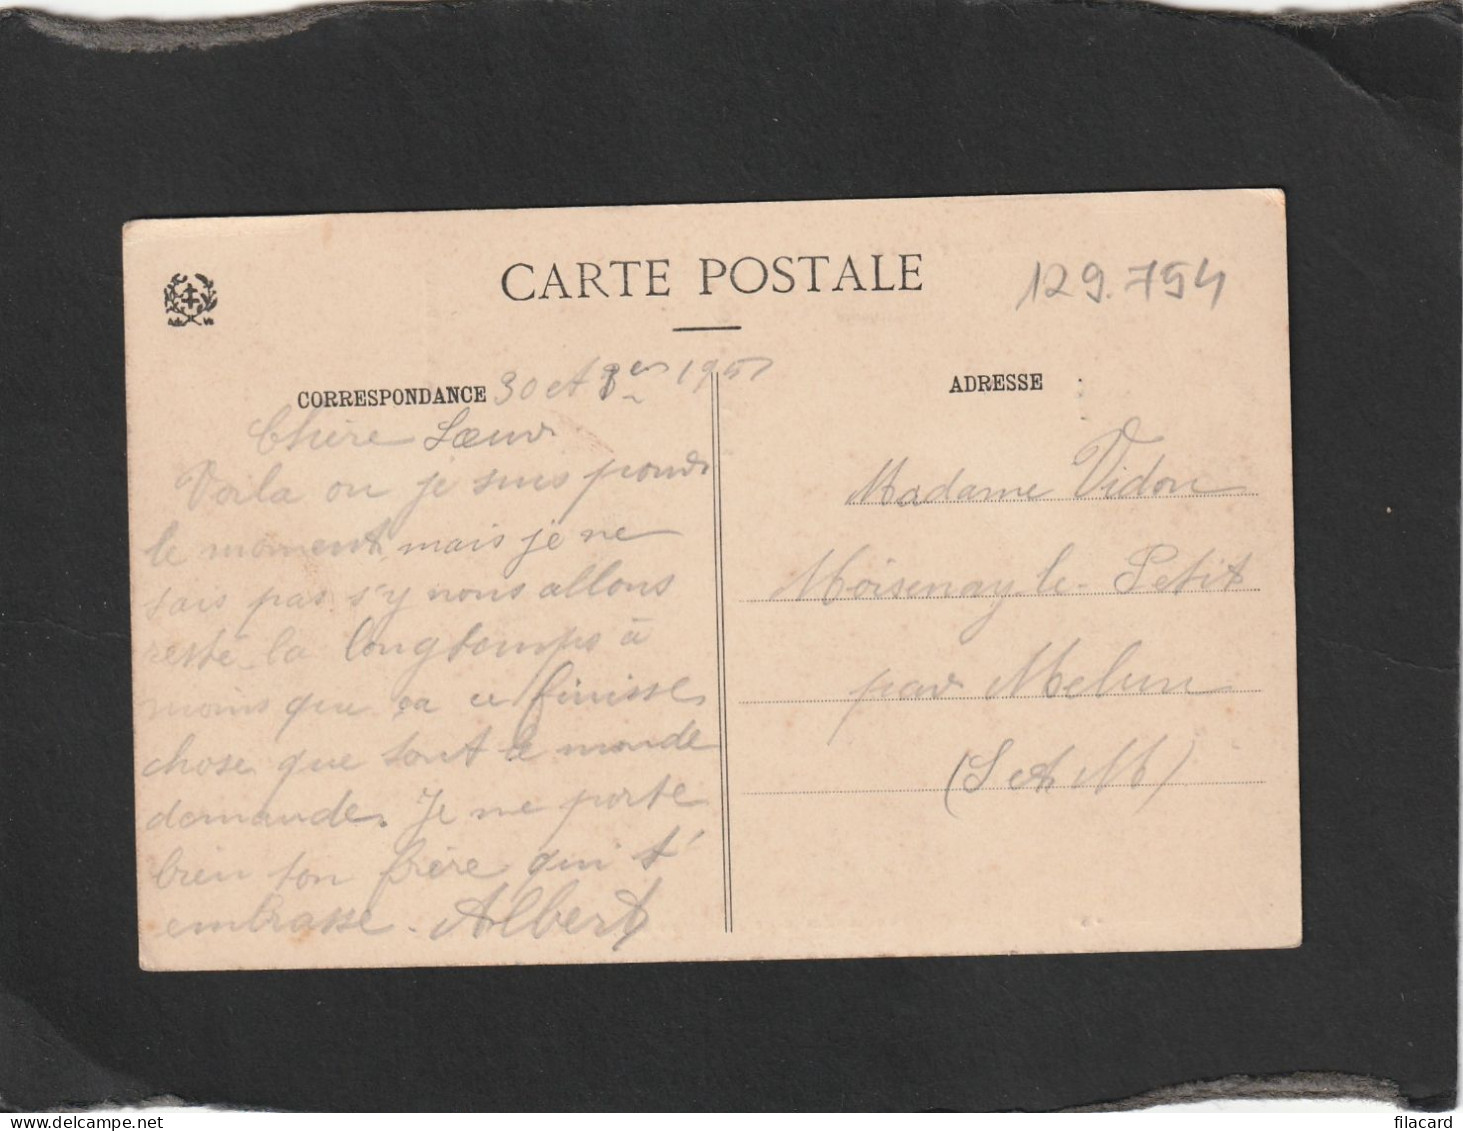 CARTE POSTALE
129.754
CORRESPONDANCE
ADRESSE
30
Chère Sœur
Voila ou je suis pour
le moment mais je ne
sais pas s'y nous allons
resté la longtemps à
moins que ça ce finisse
chose que tout le monde
demande. Je me porte
bien ton frère qui t'
embrasse. Albert
Madame Vidon
Moisenay le-Petit
par Melun
(S et M)
filacard.com